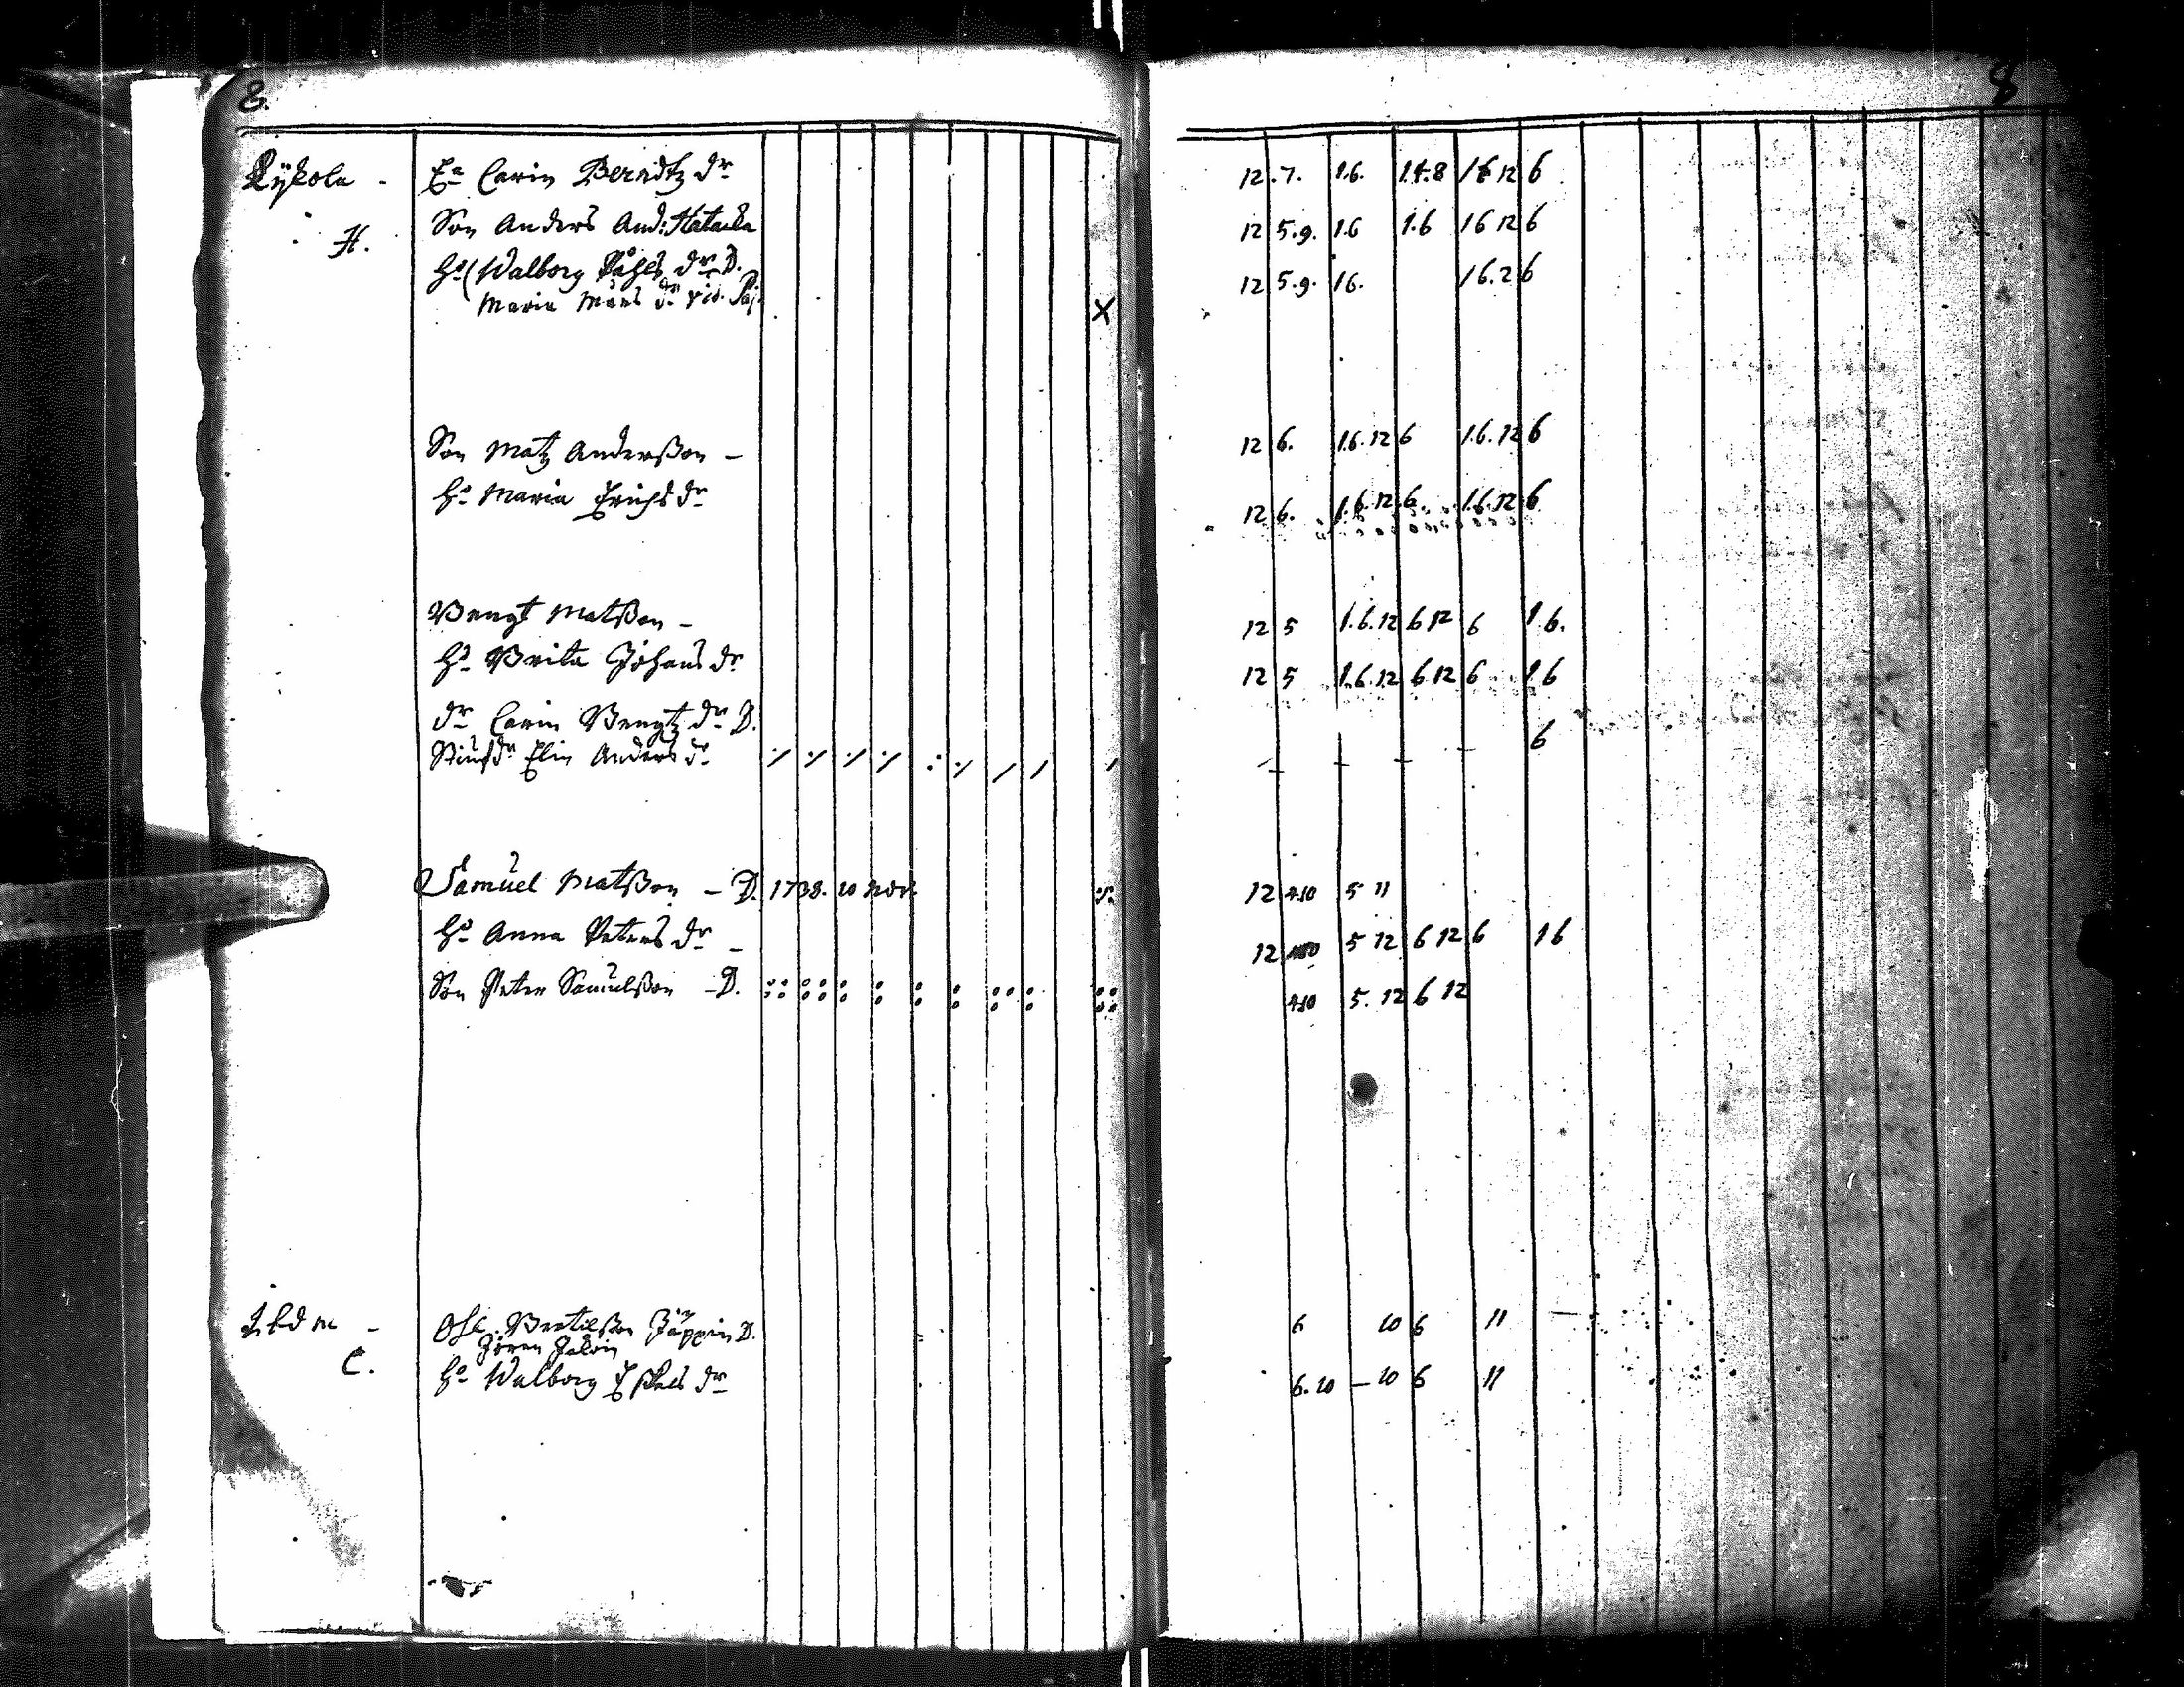 8. 8
Rÿkola - Ea Carin Berndtz dr 12 .7. 1.6. 1.8 12 6
H. Son Anders And: Hatacka 12 5.9. 1.6 1.6 16 12 6
Hu (Walborg Påhls dr D. 12 5.9. 16. 16. 2 6
Maria Mårs dr X
Son Matz Anderßon - 12 6. 1.6. 12 6 1.6. 12 6
Hu Maria Erichs dr 12 6. 1.6. 12 6 1.6. 12 6
Bengt Matßon - 12 5 1.6. 12 6 12 6 1 6.
Hu Brita Johans dr 12 5 1.6. 12 6 12 6 1 6
dr Carin Bengtz dr D. 6
Elin Anders dr
Samuel Matßon - D. 1738. 10 nov. 12 4.10 5 11
Hu Anna Peters dr - 12 5 12 6 12 6 1 6
Son Peter Samuelßon - D. 4.10 5. 12 6 12
Ibdm - Ol. Bertilßon Jäppin D. 6 10 6 11
Jören
C. Hu Walborg Eskels dr 6. 10 - 10 6 11